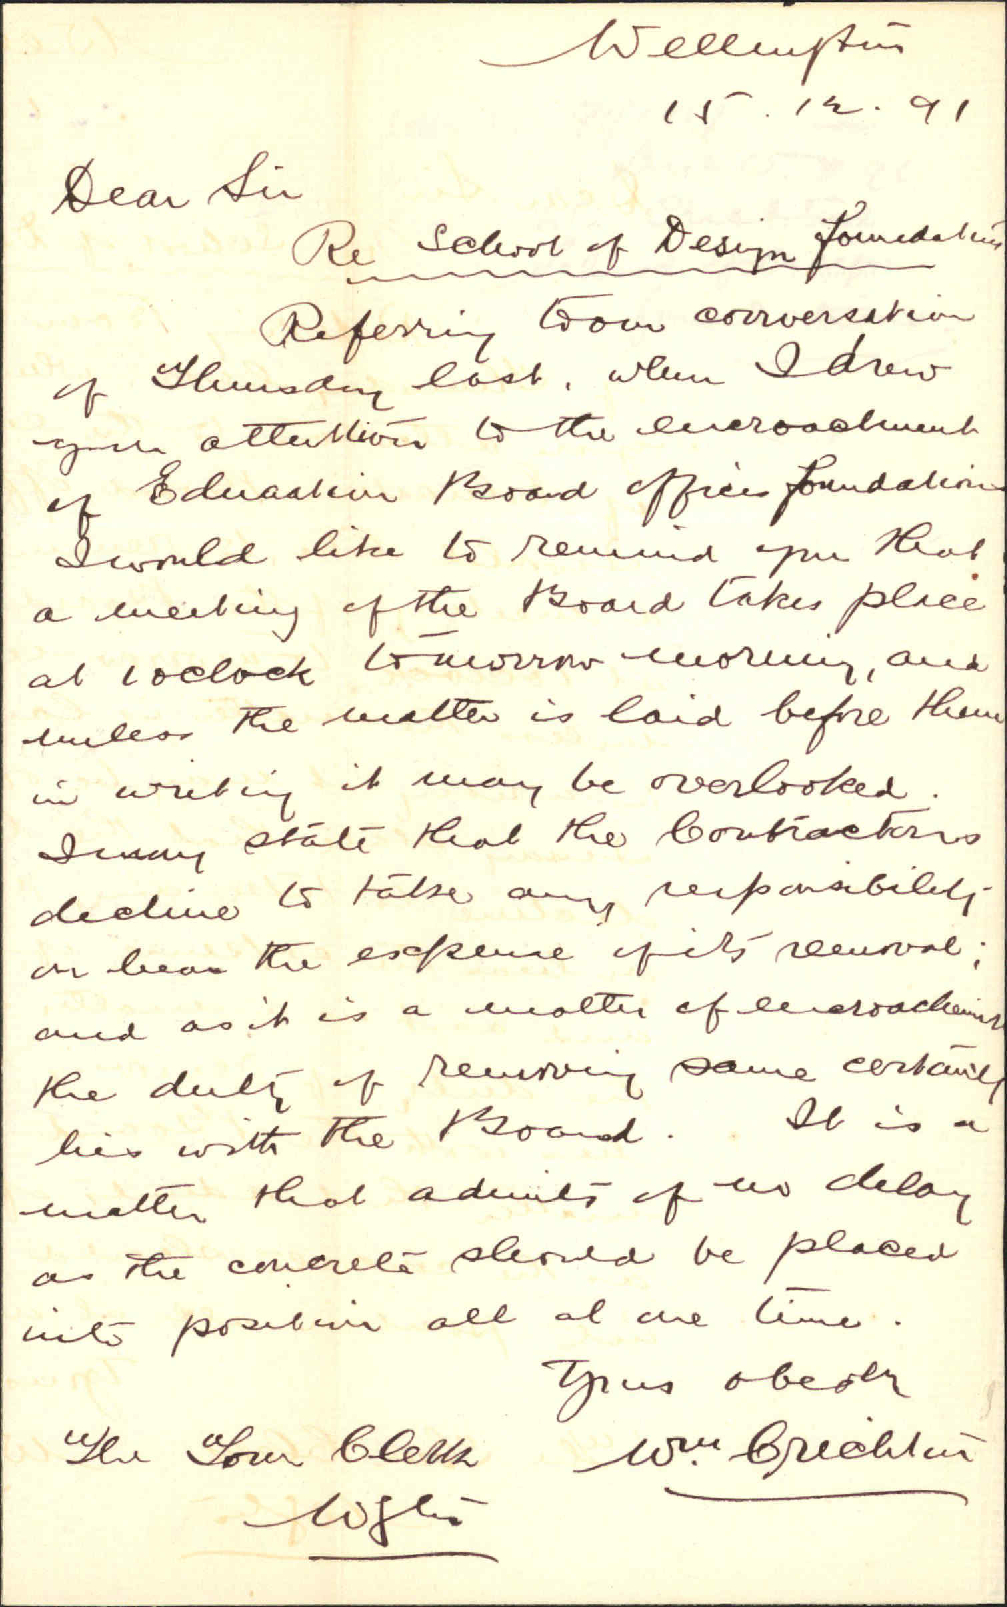 Wellington
15. 12. 91
Dear Sir
Re School of Design foundations
Referring to our conversation
of Thursday last, when I drew
your attention to the encroachment
of Education Board offices foundations
I would like to remind you that
a meeting of the Board takes place
at 10clock tomorrow morning, and
unless the matter is laid before them
in writing it may be overlooked.
I may state that the Contractors
decline to take any responsibility
or bear the expense of its removal;
and as it is a matter of encroachment
the duty of removing same certainly
lies with the Board. It is a
matter that admits of no delay
as the concrete should be placed
into position all at one time.
Yours obedly
The Town Clerk Wm. Crichton
Wgtn